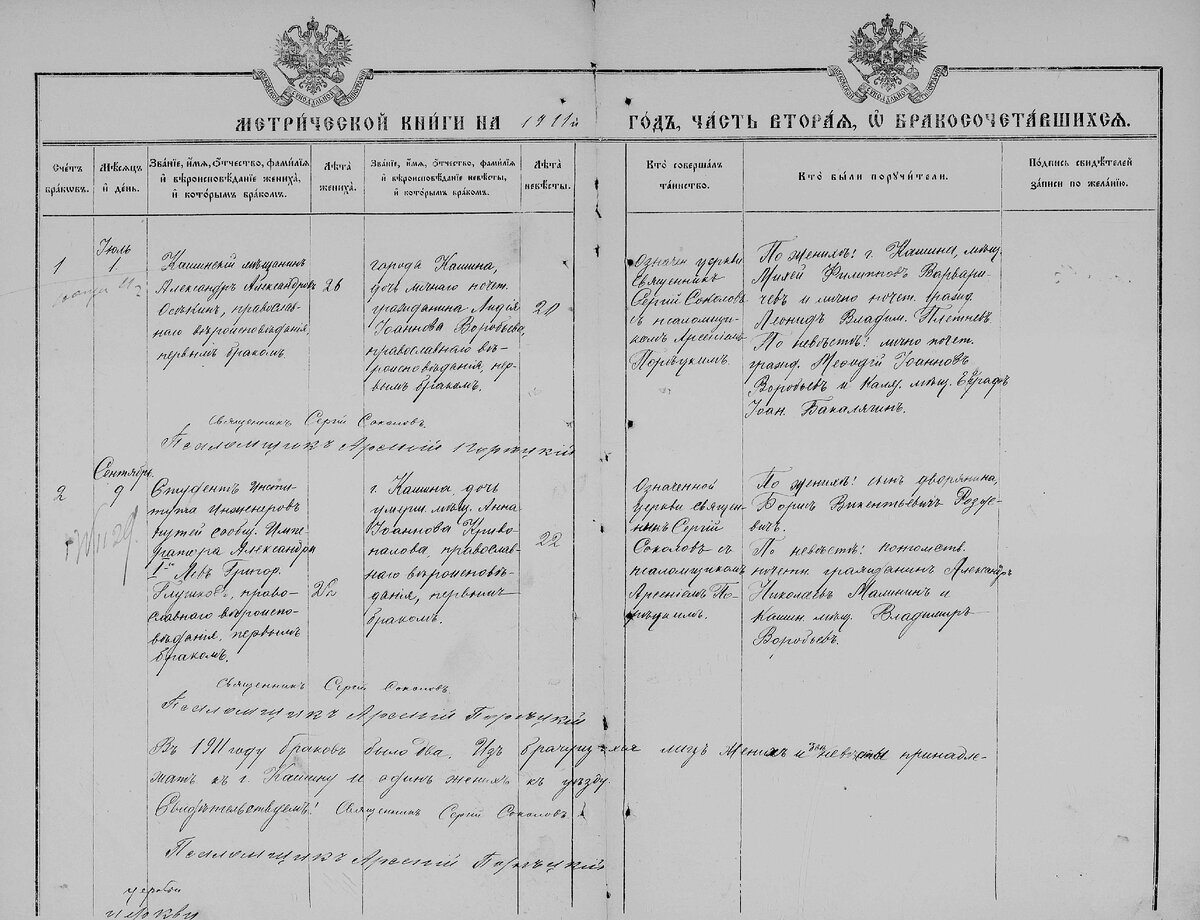 МЕТРИ́ЧЕСКОЙ КНИ́ГИ НА 1911й ГО́ДЪ, ЧА́СТЬ ВТОРА́Я, Ѡ БРАКОСОЧЕТА́ВШИХСЯ.
Сче́тъ бра́ковъ.
Мѣ́сяцъ и́ де́нь.
Зва́нїе, и́мя, о́тчество, фами́лїя и́ вѣроисповѣ́данїе жениха́, и́ кото́рымъ бра́комъ.
Лѣ́та жениха́.
Зва́нїе, и́мя, о́тчество, фами́лїя и́ вѣроисповѣ́данїе невѣ́сты, и́ кото́рымъ бра́комъ.
Лѣ́та невѣ́сты.
Кто̀ соверша́лъ та́инство.
Кто̀ бы́ли поручи́тели.
По́дпись свидѣ́телей за́писи по жела́нїю.
1
Іюль
1
Кашинскій мѣщанинъ
Александръ Александровъ
Осѣкинъ, православ-
наго вѣроисповѣданія,
первымъ бракомъ
26
города Кашина,
дочь личнаго почет.
гражданина Лидія
Іоаннова Воробьева,
православнаго вѣ-
роисповѣданія, пер-
вымъ бракомъ.
20
Означен. церкви
Священникъ
Сергій Соколовъ
съ псаломщи-
комъ Арсеніемъ
Порѣцкимъ.
По женихѣ: г. Кашина, мѣщ.
Михей Филимонов. Варвари-
чевъ и лично почет. гражд.
Леонидъ Владим. Плетневъ
По невѣстѣ: лично почет.
гражд. Меѳодій Іоанновъ
Воробьевъ и Каляз. мѣщ. Евграфъ
Іоан. Бакалягин.
Священникъ Сергій Соколовъ.
Псаломщикъ Арсеній Порѣцкій
2
Сентябрь
9
Студентъ Инсти-
тута Инженеровъ
путей сообщ. Импе-
ратора Александра
I-го Левъ Григор.
Глушковъ, право-
славнаго вѣроиспо-
вѣданія, первымъ
бракомъ.
г. Кашина, дочь
умерш. мѣщ. Анна
Іоаннова
православ-
наго вѣроисповѣ-
данія, первымъ
бракомъ.
22
Означенной
церкви священ-
никъ Сергій
Соколовъ съ
псаломщикомъ
Арсеніемъ По-
рѣцкимъ.
По женихѣ: сынъ дворянина,
Борисъ Викентьевичъ
По невѣстѣ: потомств.
почетн. гражданинъ Александръ
Николаевъ Малинин и
Кашин. мѣщ. Владиміръ
Воробьевъ.
Священникъ Сергій Соколовъ.
Псаломщикъ Арсеній Порѣцкій
Въ 1911 году браковъ было два. Изъ брачущихся лицъ женихъ и невѣсты принадле-
жатъ къ г. Кашину и одинъ женихъ къ уѣзду.
Свидѣтельствуемъ: Священникъ Сергій Соколовъ.
Псаломщикъ Арсеній Порѣцкій